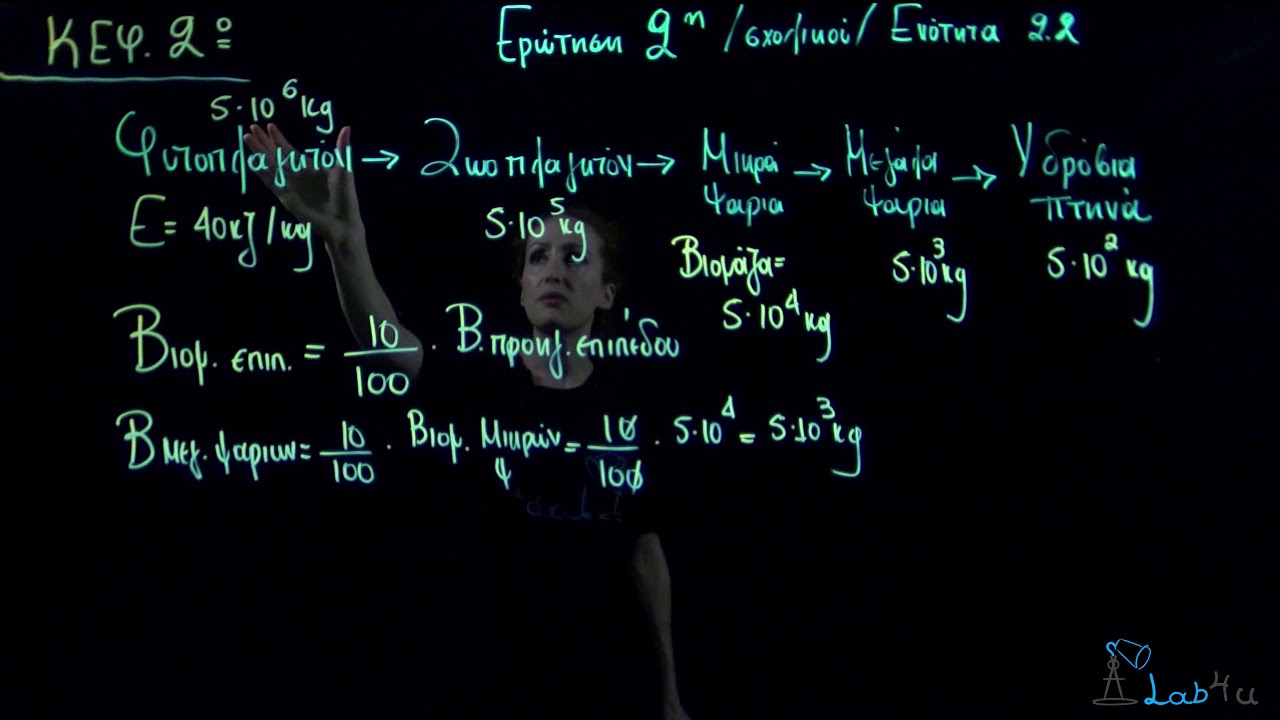 ΚΕΦ. 2º
Ερώτηση 2η /σχολικού/ Ενότητα 2.2
5·10⁶ kg
Φυτοπλαγκτόν → Ζωοπλαγκτόν → Μικρά ψαρια → Μεγάλα ψαρια → Υδρόβια πτηνά
E = 40kJ/kg
5·10⁵ kg
Βιομάζα= 5·10⁴ kg
5·10³ kg
5·10² kg
Βιομ. επιπ. = 10/100 · Β. προηγ. επιπέδου
Β μεγ. ψαριων = 10/100 · Βιομ. Μικρών ψ = 10/100 · 5·10⁴ = 5·10³ kg
Lab4u